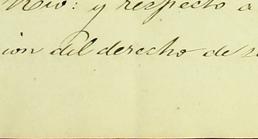 Rio: y respecto a
ion del derecho de